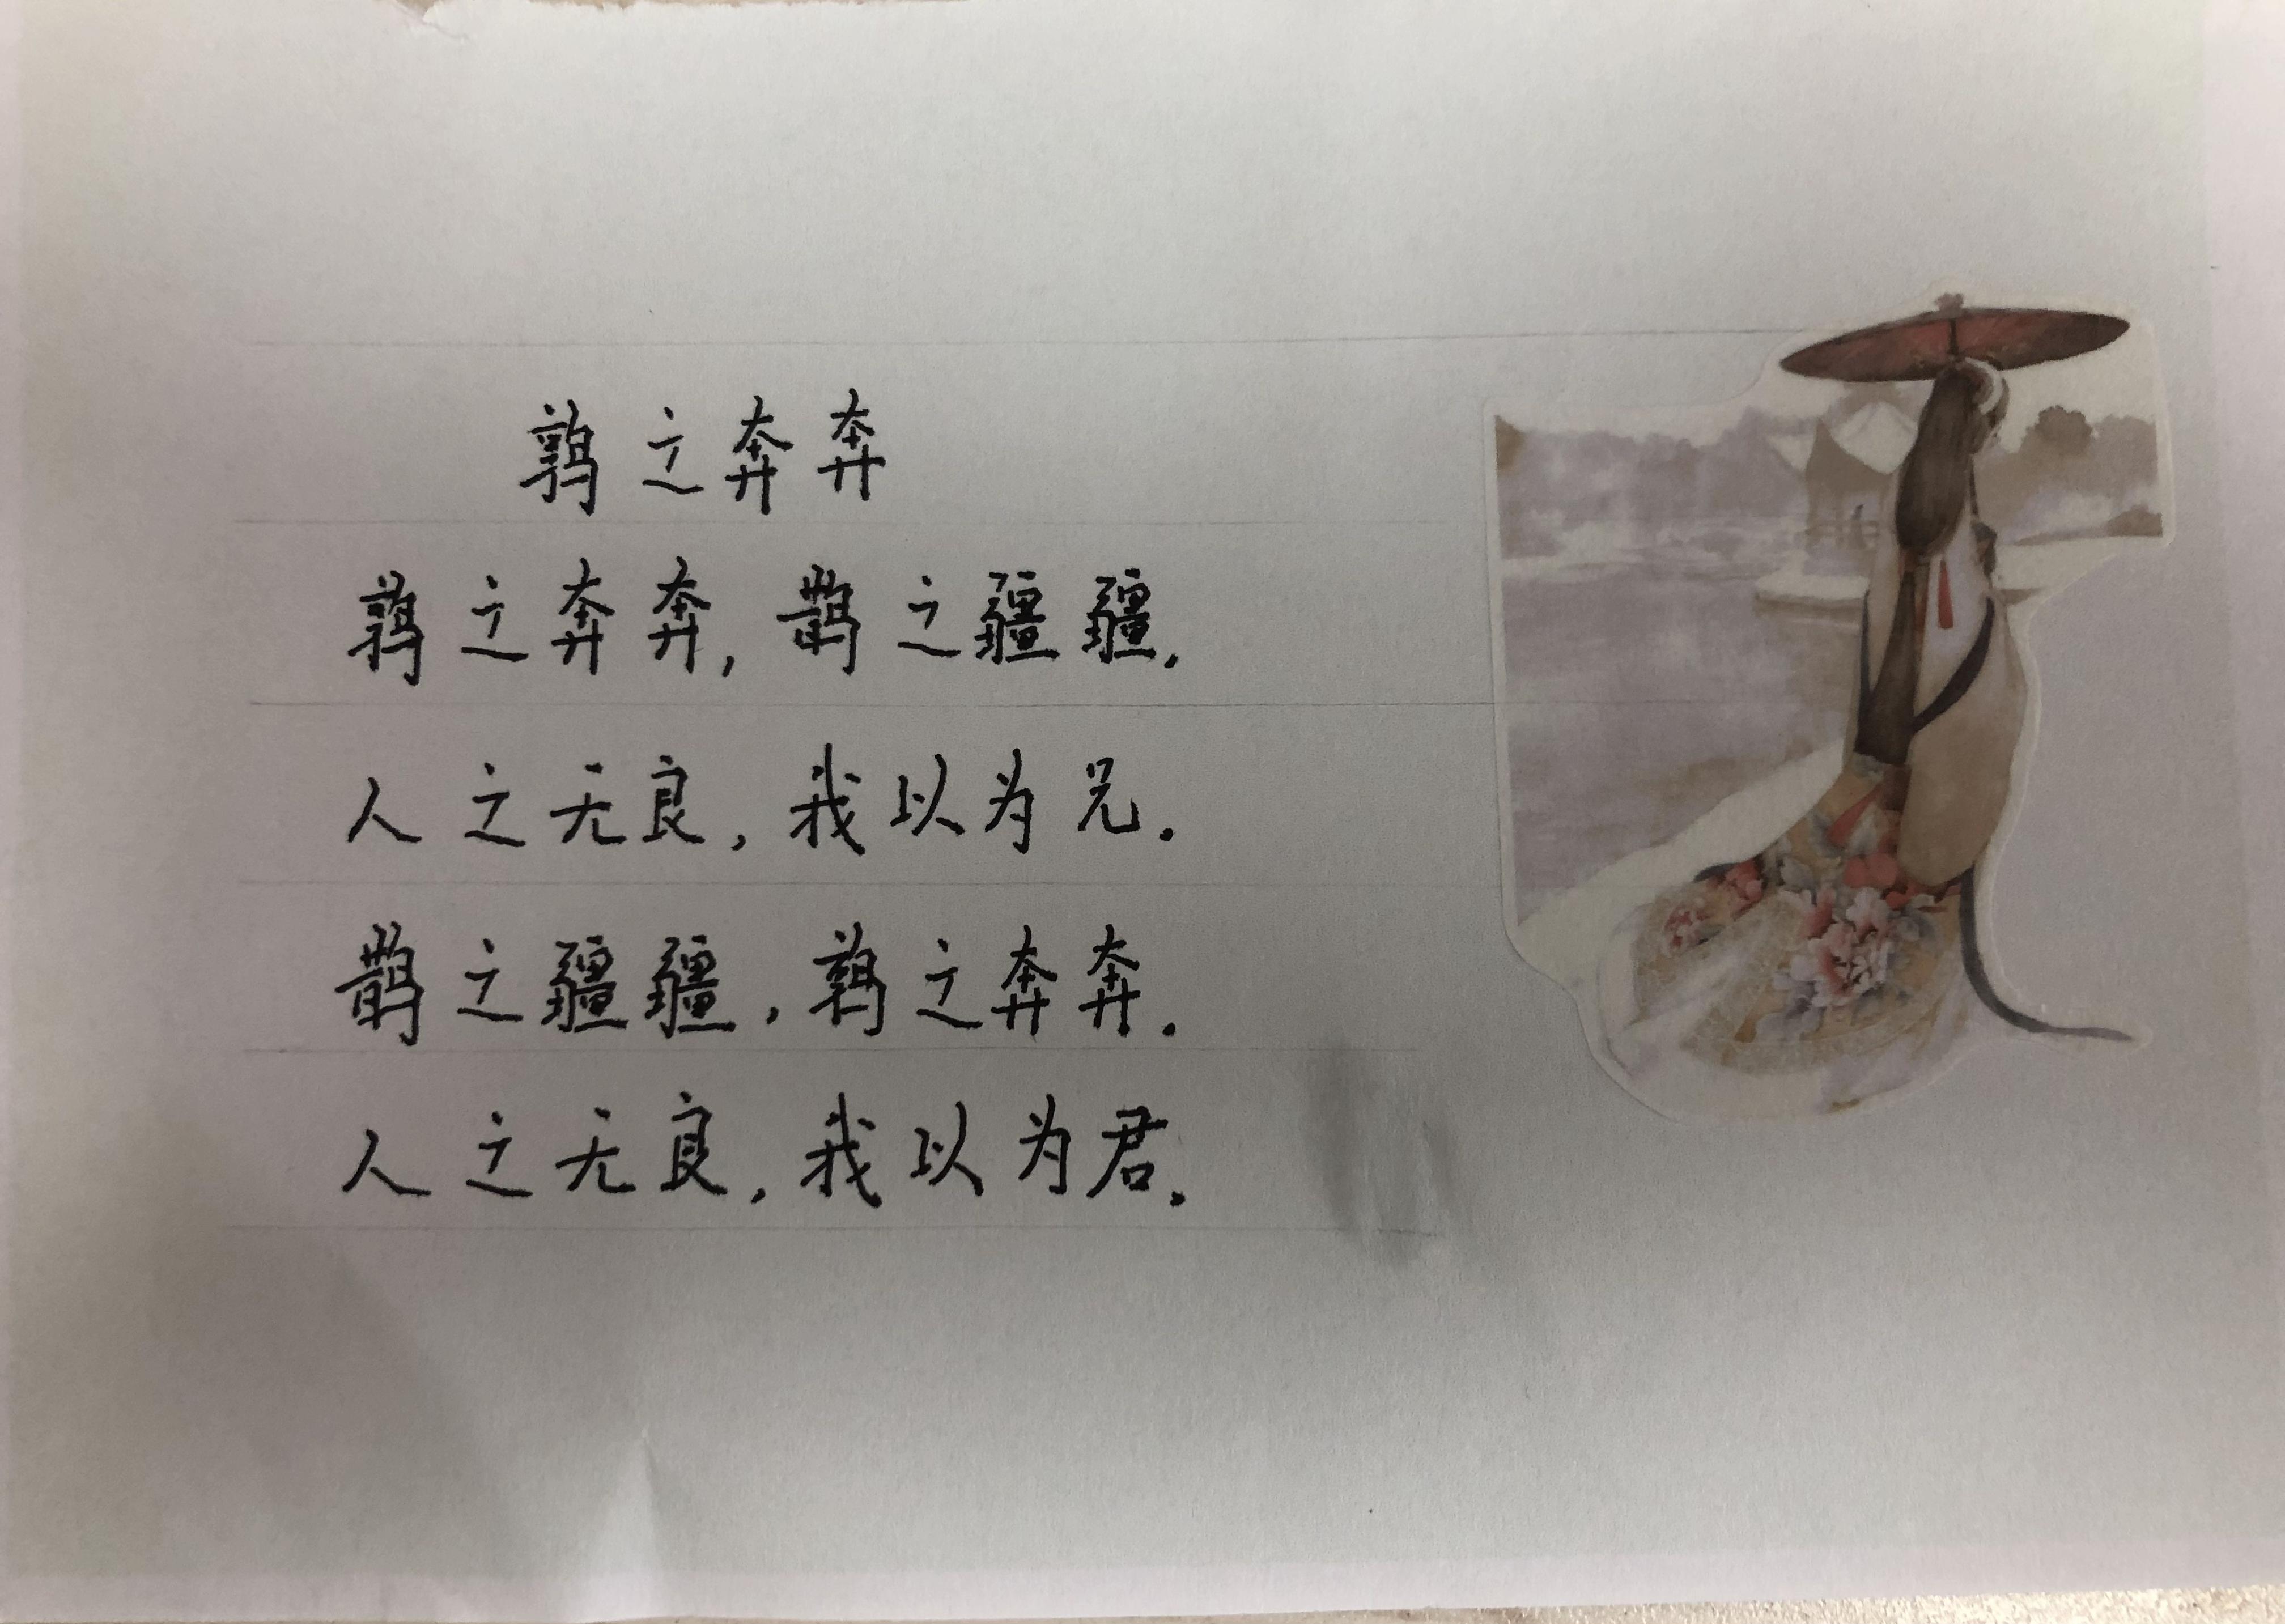 鹑之奔奔
鹑之奔奔,鹊之疆疆.
人之无良,我以为兄.
鹊之疆疆,鹑之奔奔.
人之无良,我以为君.